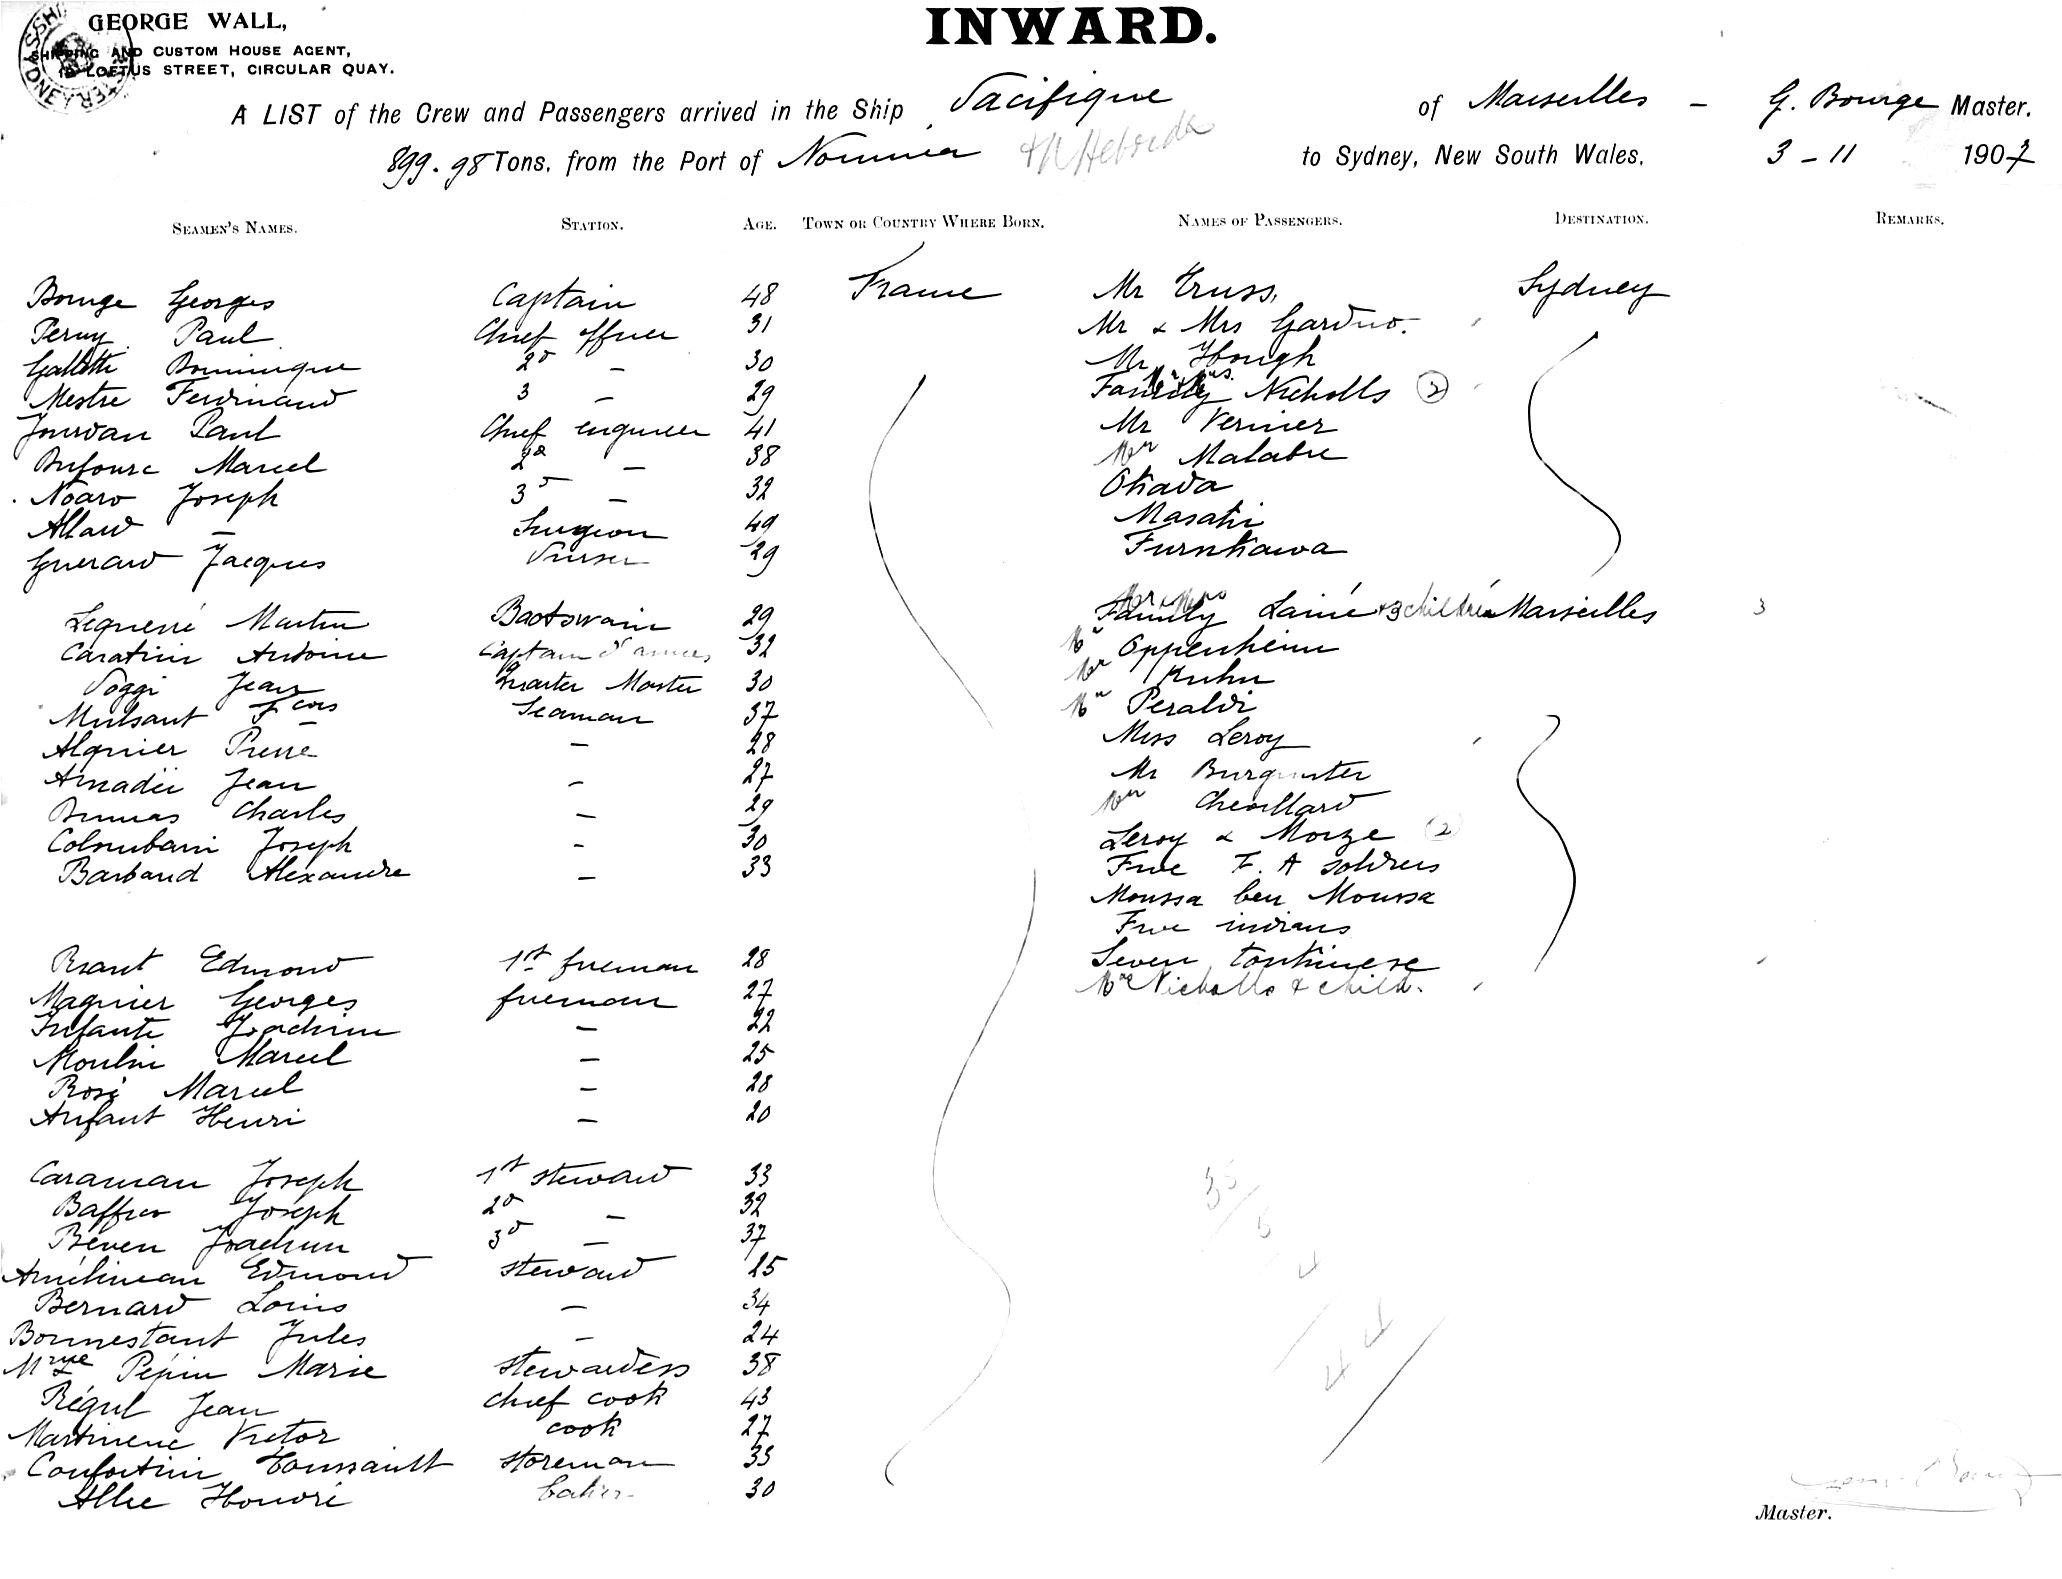 GEORGE WALL,
SHIPPING AND CUSTOM HOUSE AGENT,
LOFTUS STREET, CIRCULAR QUAY.
INWARD.
A LIST of the Crew and Passengers arrived in the Ship Pacifique of Marseilles - G. Bourge Master.
899.98 Tons, from the Port of Noumea & N Hebrides to Sydney, New South Wales, 3-11 1907
SEAMEN'S NAMES. STATION. AGE. TOWN OR COUNTRY WHERE BORN. NAMES OF PASSENGERS. DESTINATION. REMARKS.
Bourge Georges Captain 48 France
Paul Chief officer 31
Dominique 2d - 30
Mestre Ferdinand 3 - 29
Jourdan Paul Chief engineer 41
Dufourc Marcel 2d - 38
Noaro Joseph 3d - 32
Allard - Surgeon 49
Guerard Jacques Purser 29
Lequerré Martin Bootswain 29
Caratini Antoine Captain d'armes 32
Poggi Jean Quarter Master 30
Mulsant Fcois Seaman 37
Alquier Pierre - 28
Amadéi Jean - 27
Dumas Charles - 29
Colombani Joseph - 30
Barbaud Alexandre - 33
Edmond 1st fireman 28
Magnier Georges fireman 27
Infante Joachim - 22
Moulin Marcel - 25
Rosi Marcel - 28
Anfant Henri - 20
Caraman Joseph 1st steward 33
Joseph 2d - 32
Beven Joachim 3d - 37
Amélineau Edmond steward 25
Bernard Louis - 34
Bonnestant Jules - 24
Mme Pépin Marie stewardess 38
Régul Jean chief cook 43
Martinene Victor cook 27
Confortini Toussaint storeman 33
Honoré 30
Mr Truss, Sydney
Mr & Mrs
Mr Hough
Family Nicholls 2
Mr Vernier
Mr Malabre
Okada
Masaki
Furukawa
Mr & Mrs Family Lainé & 3 children Marseilles 3
Mr Oppenheim
Mr Kuhn
Mr Peraldi
Miss Leroy
Mr
Mr Chevillard
Leroy & Moize 2
Five F. A soldiers
Moussa ben Moussa
Five indians
Seven tonkinese
Nicholls & child.
35
5
4
44
Master.